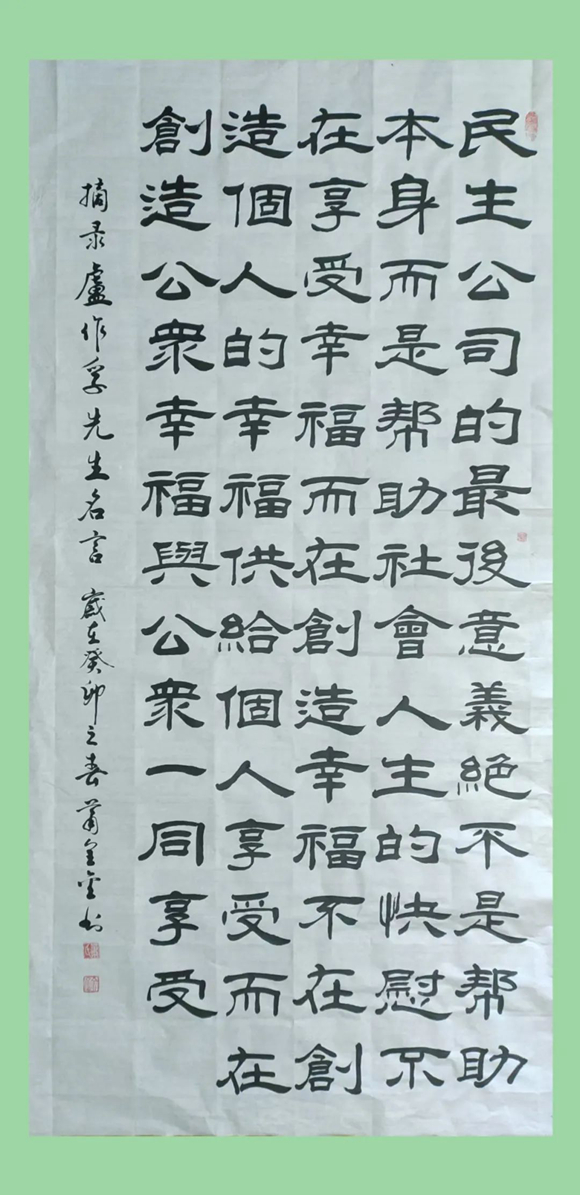 民主公司的最後意義絕不是帮助
本身而是帮助社會人生的快慰不
在享受幸福而在創造幸福不在創
造個人的幸福供給個人享受而在
創造公衆幸福與公衆一同享受
摘录盧作孚先生名言 歲在癸卯之春 蕭